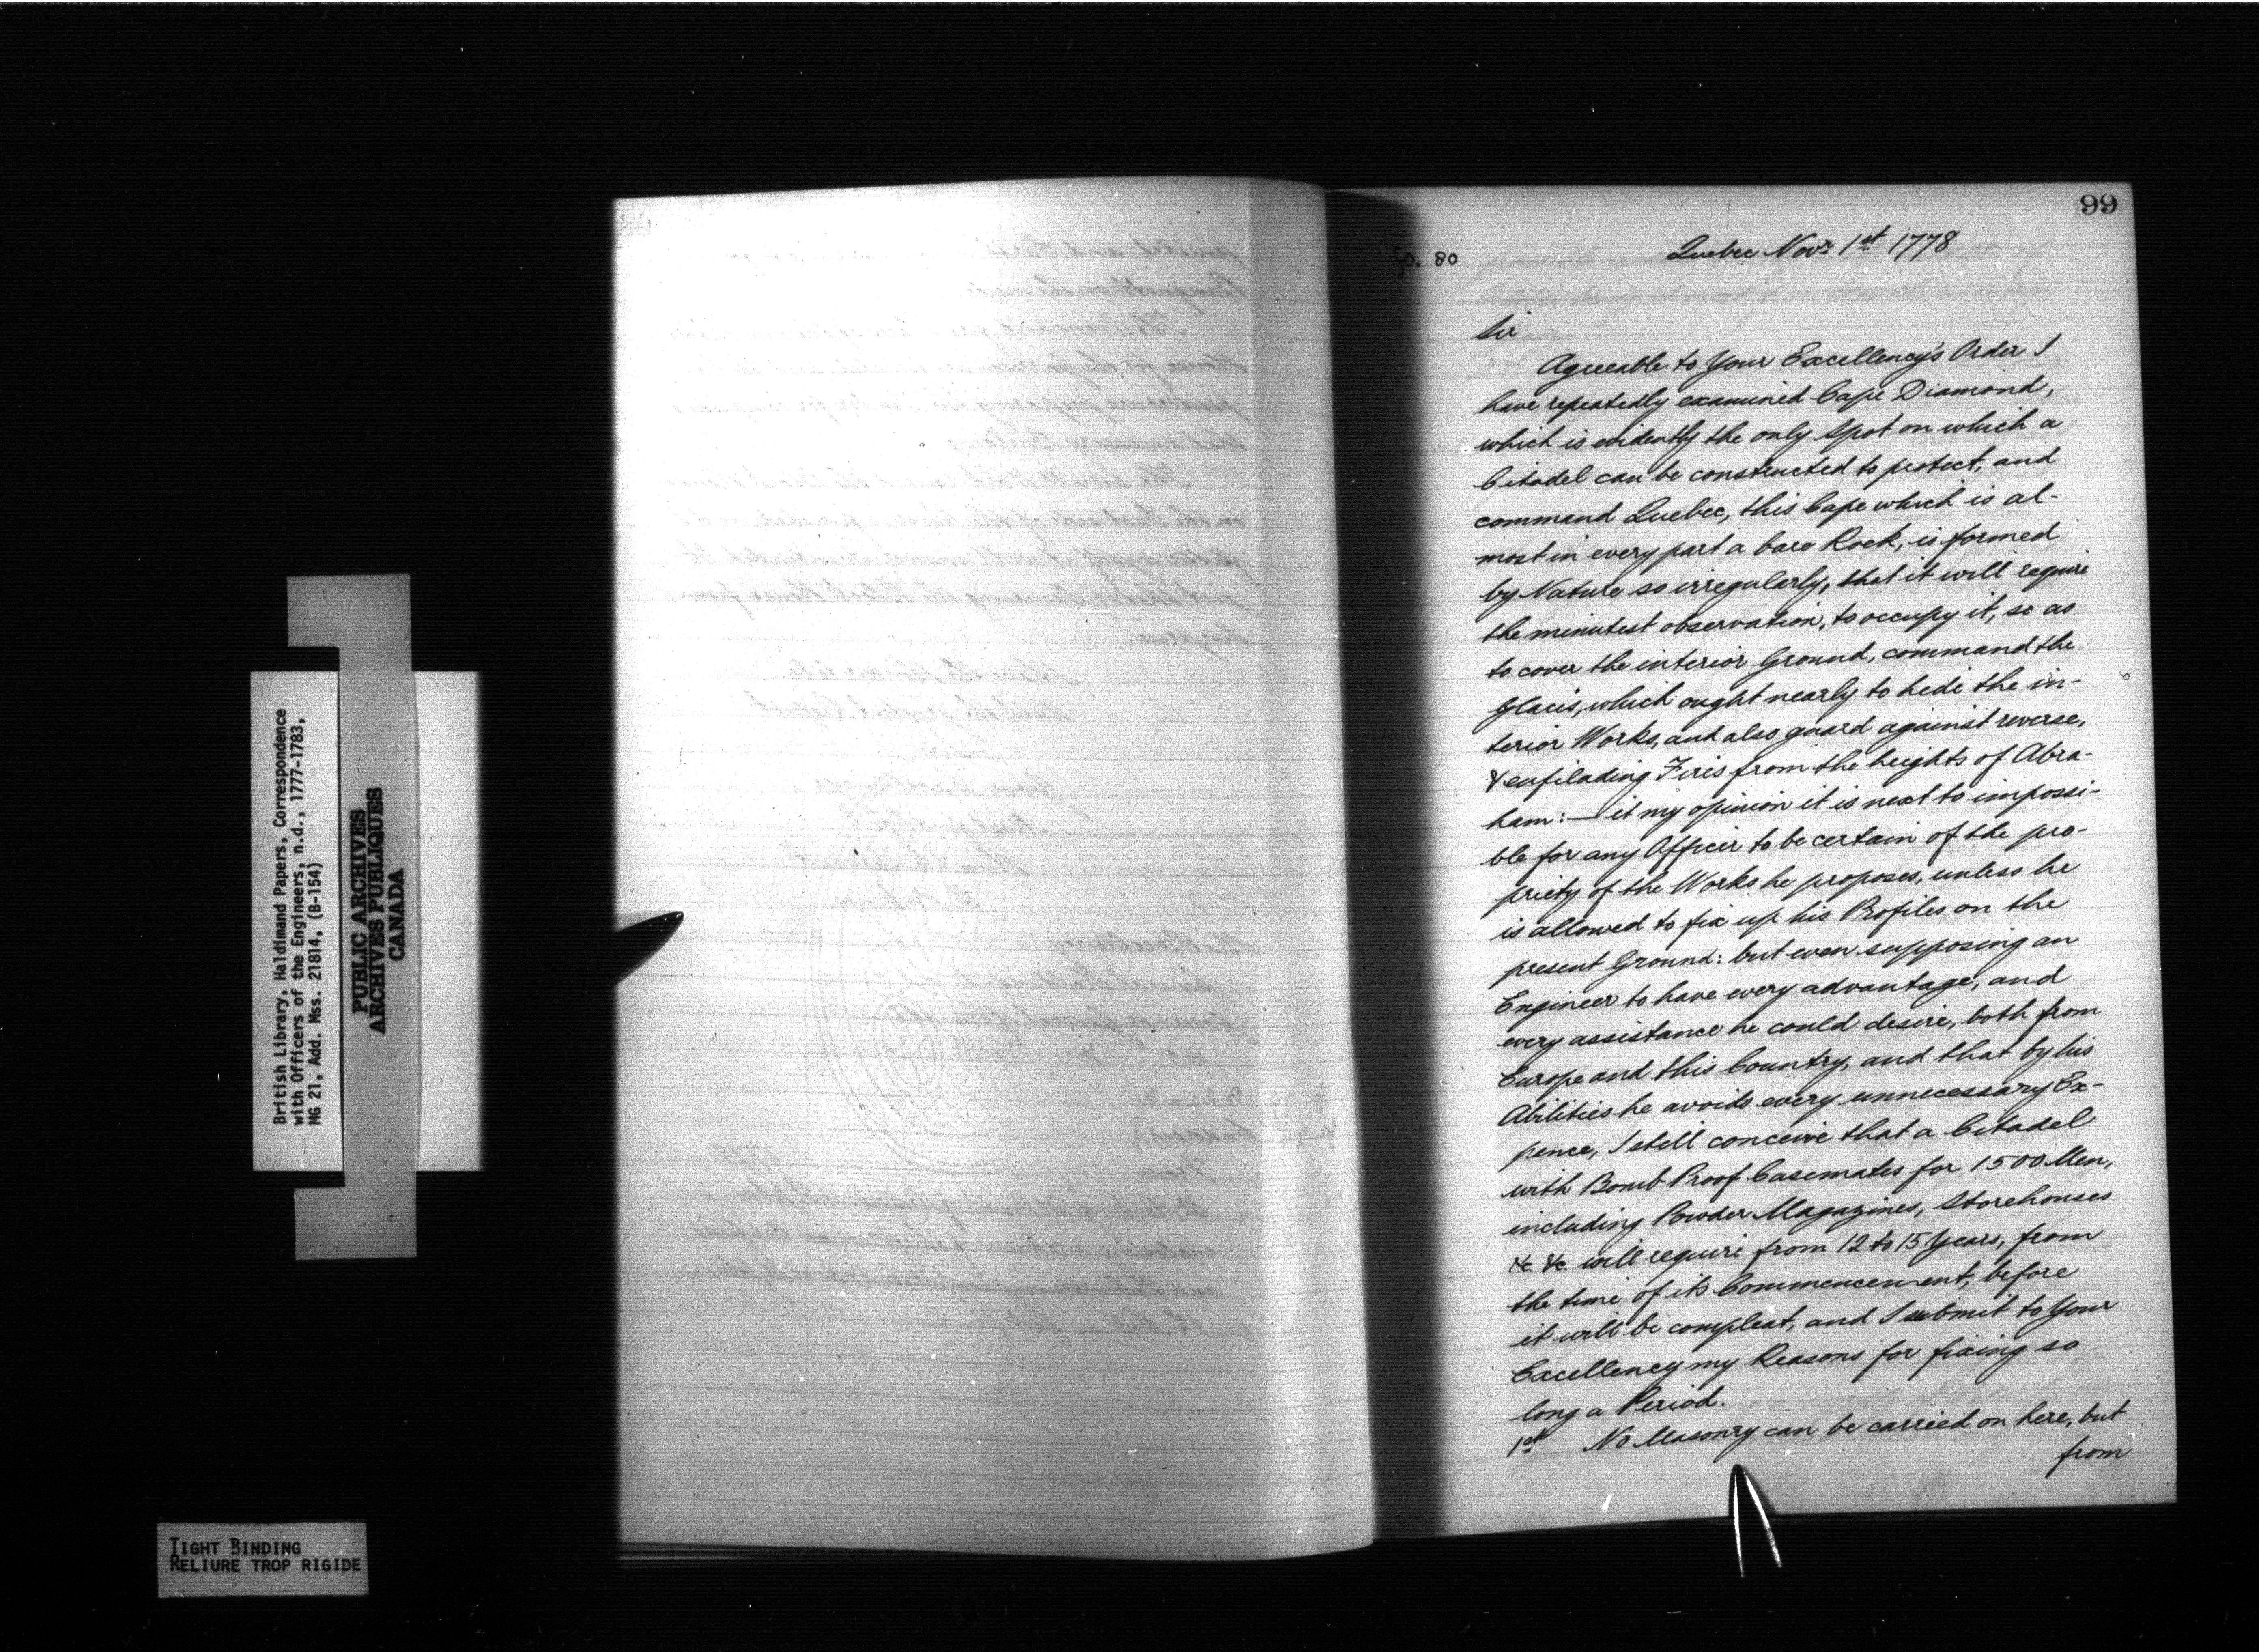 99
fo. 80
Quebec Novr 1st 1778
Sir
Agreeable to Your Excellency's Order I
have repeatedly examined Cape Diamond,
which is evidently the only Spot on which a
Citadel can be constructed to protect, and
command Quebec, this Cape which is al-
most in every part a bare Rock, is formed
by Nature so irregularly, that it will require
the minutest observation, to occupy it, so as
to cover the interior Ground, command the
Glacis, which ought nearly to hide the in-
terior Works, and also guard against reverse,
& enfilading Fires from the heights of Abra-
ham:— it my opinion it is next to impossi-
ble for any Officer to be certain of the pro-
priety of the Works he proposes, unless he
is allowed to fix up his Profiles on the
present Ground: but even supposing an
Engineer to have every advantage, and
every assistance he could desire, both from
Europe and this Country, and that by his
Abilities he avoids every unnecessary Ex-
pence, I still conceive that a Citadel
with Bomb Proof Casemates for 1500 Men,
including Powder Magazines, Storehouses
&c &c. will require from 12 to 15 Years, from
the time of its Commencement, before
it will be compleat, and I submit to Your
Excellency my Reasons for fixing so
long a Period.
1st No Masonry can be carried on here, but
from
British Library, Haldimand Papers, Correspondence
with Officers of the Engineers, n.d., 1777-1783,
MG 21, Add. Mss. 21814, (B-154)
PUBLIC ARCHIVES
ARCHIVES PUBLIQUES
CANADA
TIGHT BINDING
RELIURE TROP RIGIDE